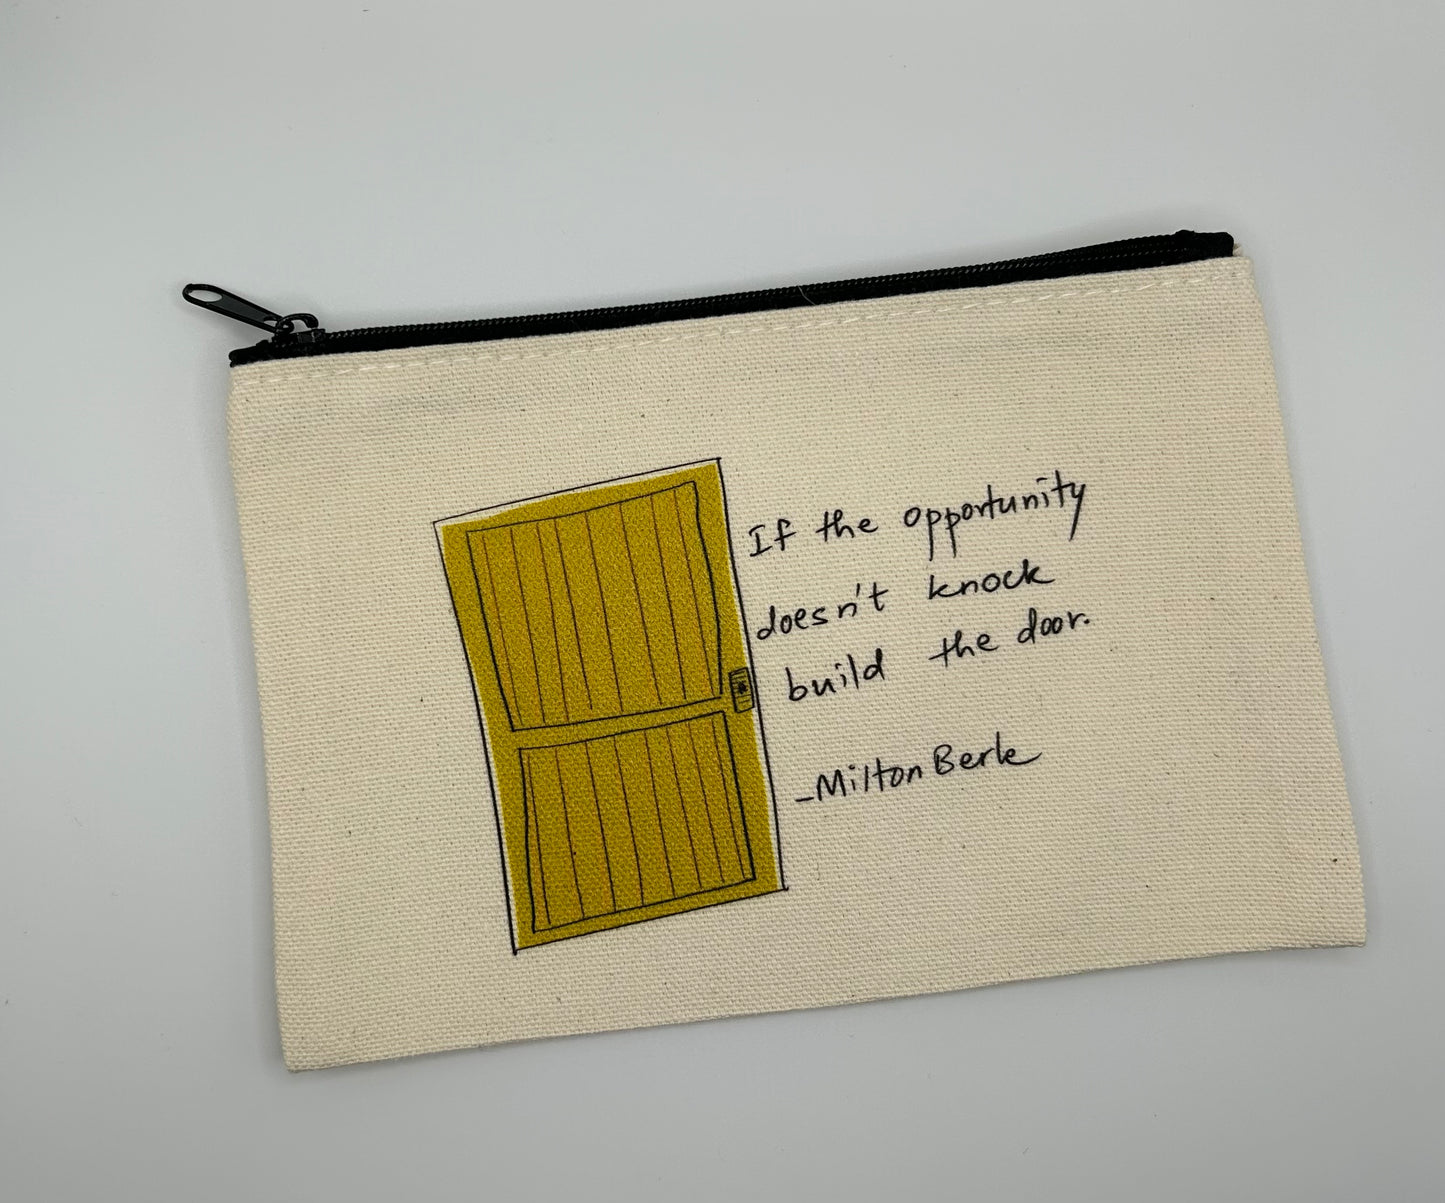 If the opportunity
doesn't knock
build the door.
-Milton Berle